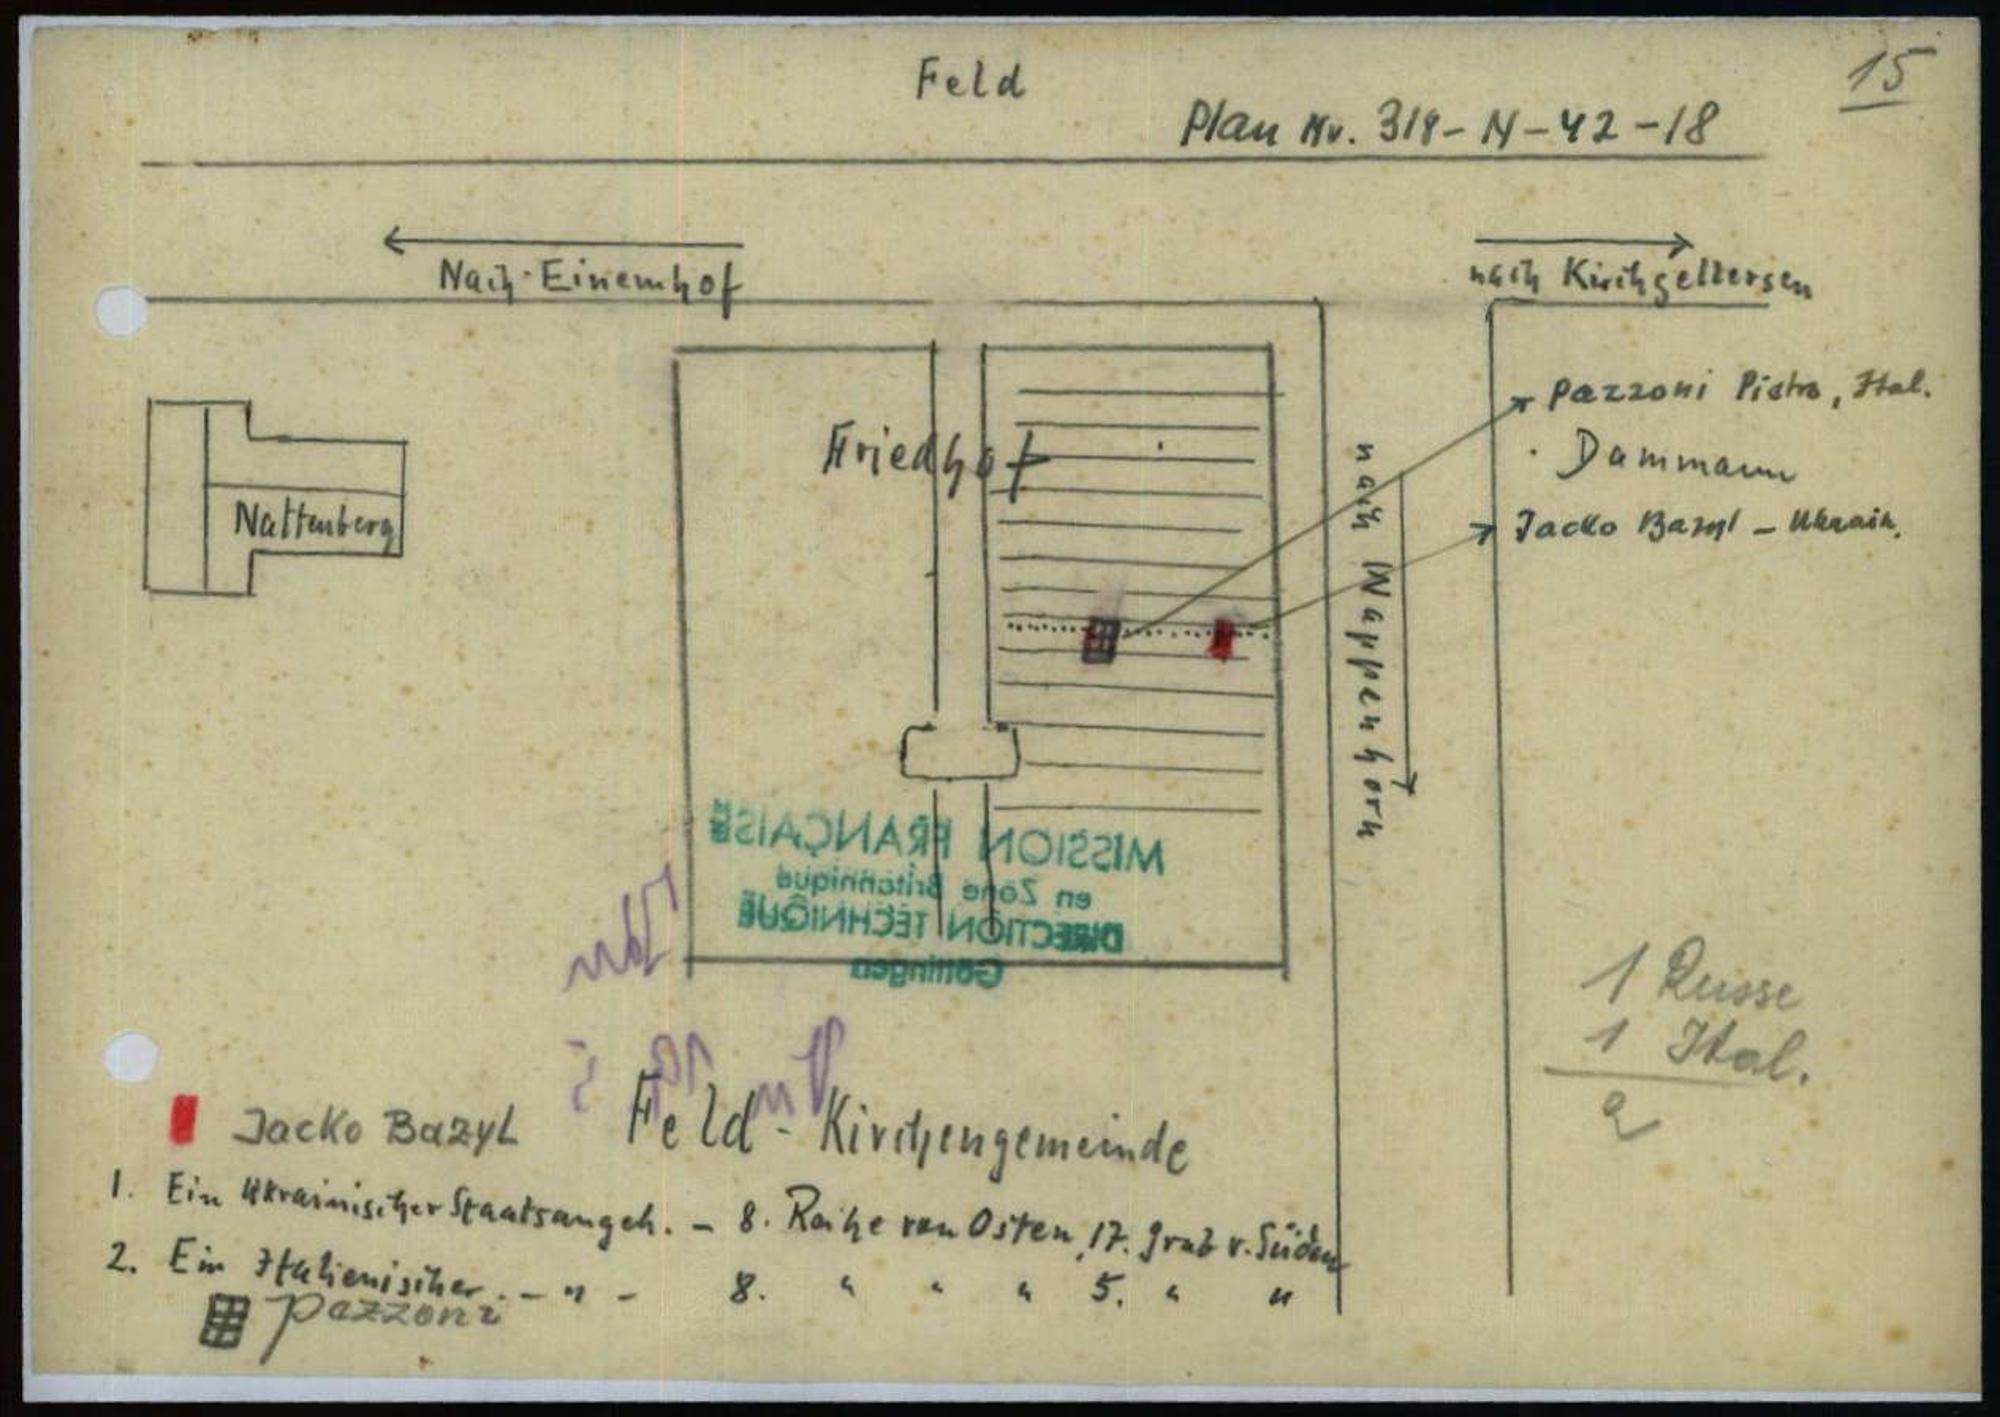 15
Feld
Plan Nr. 319-N-42-18
Nach Einemhof
nach Kirchgellersen
Pazzoni Pietro, Ital.
Dammann
Jacko Bazyl - Ukrain.
Friedhof
Nattenberg
nach Wappenhorn
MISSION FRANÇAISE
en Zone Britannique
DIRECTION TECHNIQUE
Göttingen
1 Russe
1 Ital.
2
Jacko Bazyl
Feld - Kirchengemeinde
1. Ein Ukrainischer Staatsangeh. - 8. Reihe von Osten, 17. Grab v. Süden
2. Ein Italienischer. - " - 8. " " " 5. " "
Pazzoni